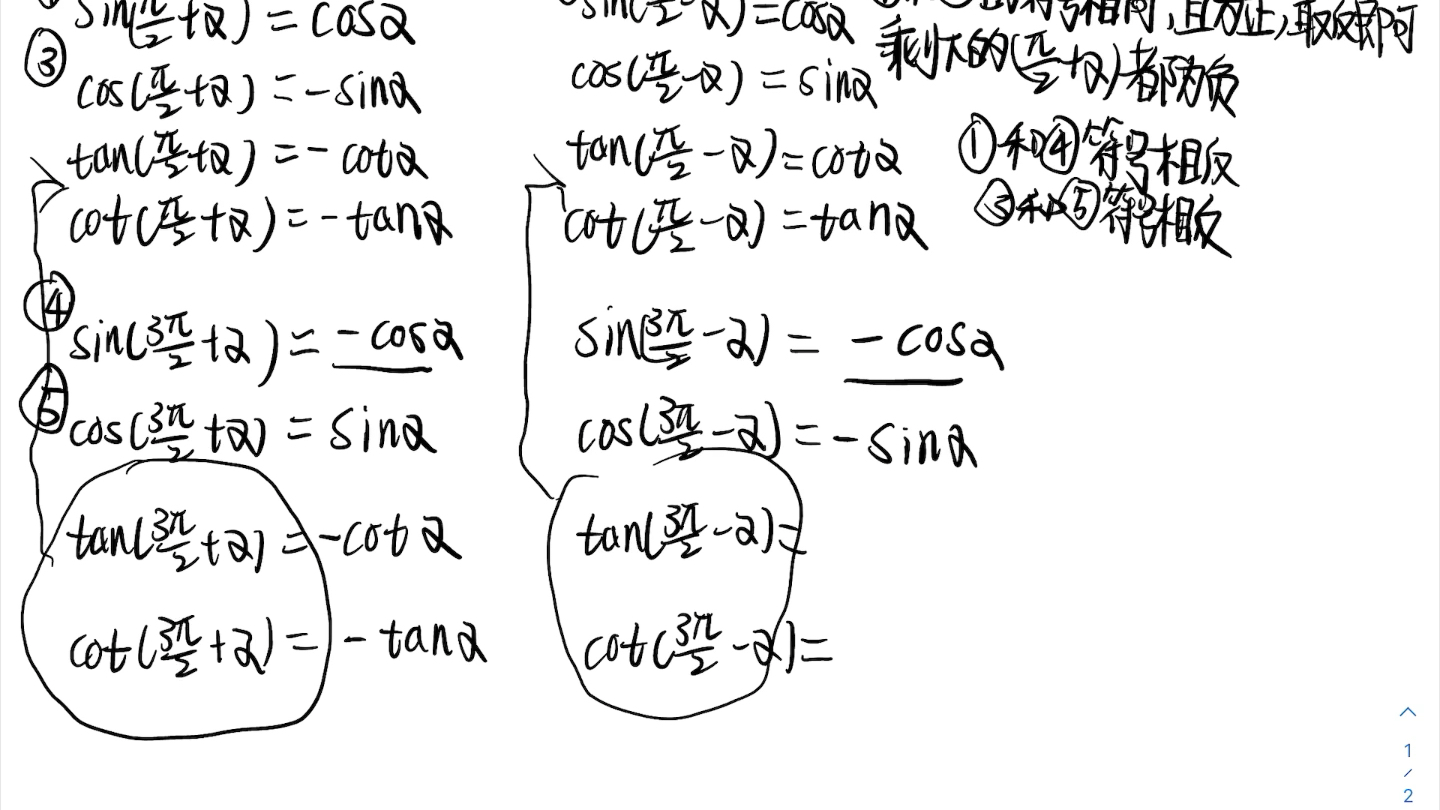 sin(π/2+α)=cosα
③
cos(π/2+α)=-sinα
tan(π/2+α)=-cotα
cot(π/2+α)=-tanα
④
sin(3π/2+α)=-cosα
⑤
cos(3π/2+α)=sinα
tan(3π/2+α)=-cotα
cot(3π/2+α)=-tanα
sin(π/2-α)=cosα
cos(π/2-α)=sinα
tan(π/2-α)=cotα
cot(π/2-α)=tanα
sin(3π/2-α)=-cosα
cos(3π/2-α)=-sinα
tan(3π/2-α)=
cot(3π/2-α)=
符号相同,且为正,取反即可
剩下的(π/2+α)都为负
①和④符号相反
③和⑤符号相反
1
/
2